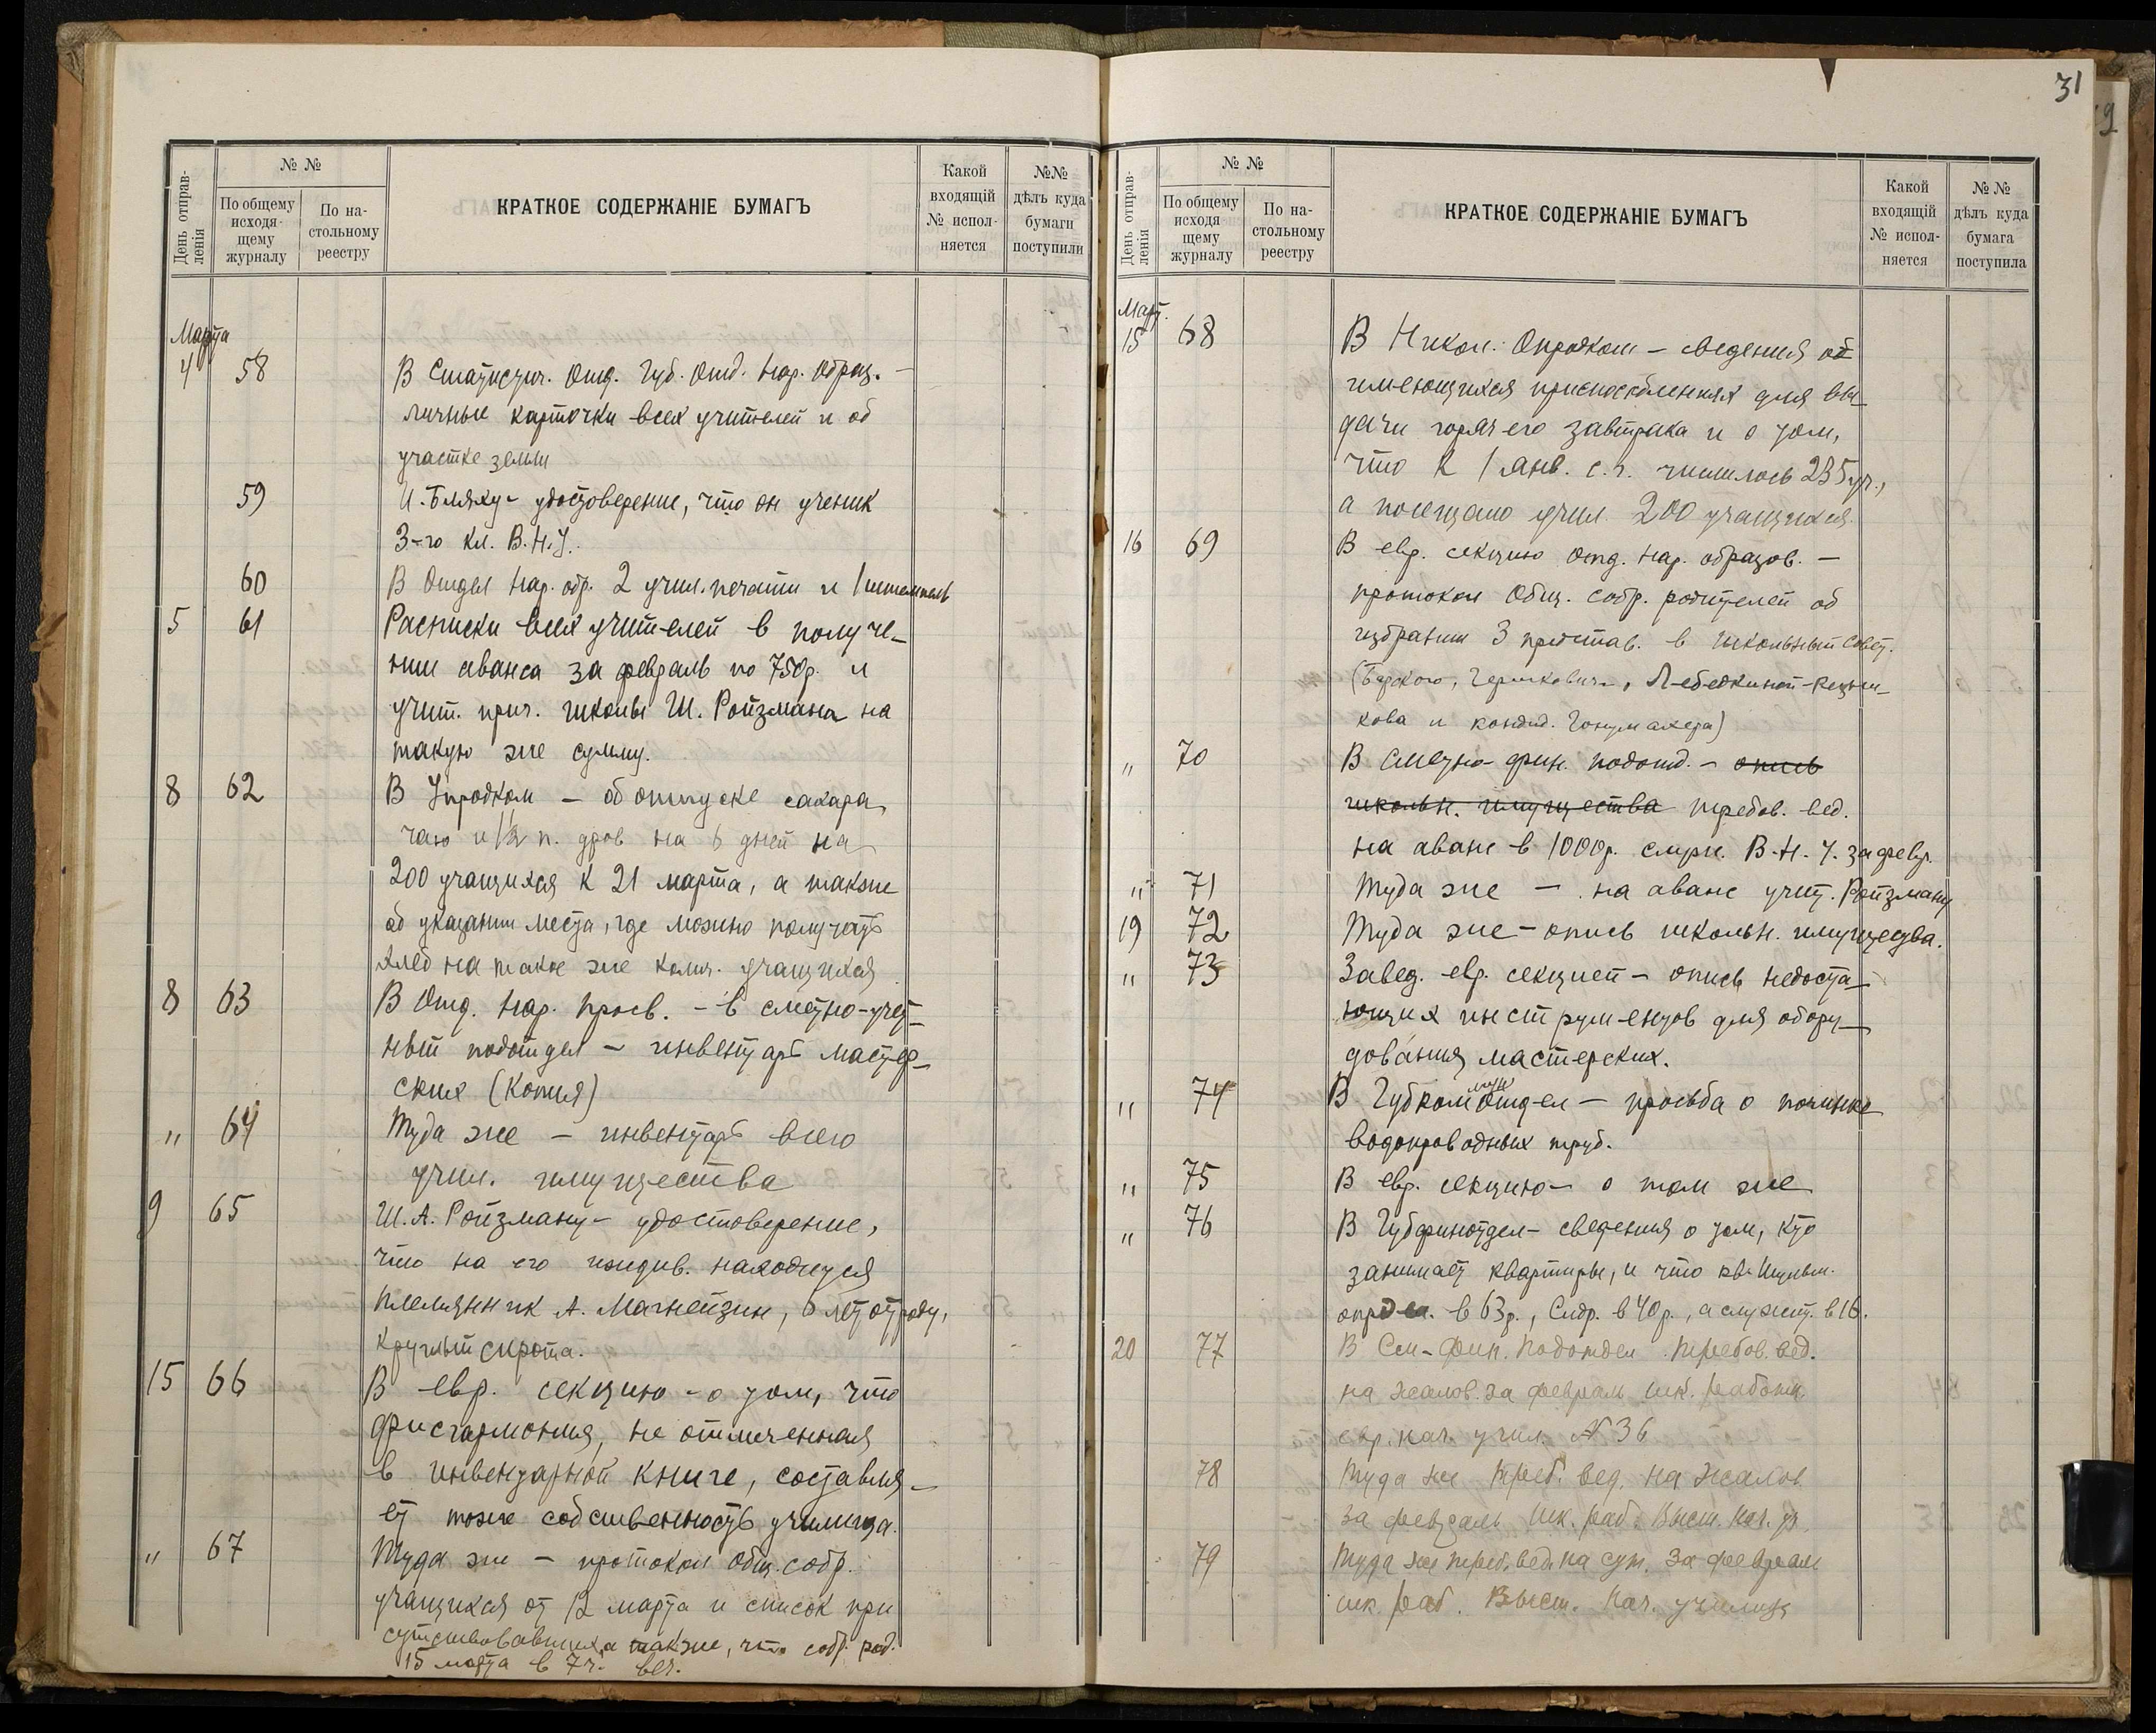 31
День отправ-
ленія
№ №
По общему
исходя-
щему
журналу
По на-
стольному
реестру
КРАТКОЕ СОДЕРЖАНІЕ БУМАГЪ
Какой
входящій
№ испол-
няется
№№
дѣлъ куда
бумаги
поступили
Марта
4 58 В Статистич. Отд. Губ. Отд. Нар. Образ. –
личные карточки всех учителей и об
участке земли
59 И. Бляху – удостоверение, что он ученик
3-го кл. В.Н.У.
60 В Отдел Нар. обр. 2 учил. печати и 1 штемпель
5 61 Расписки всех учителей в получе-
нии аванса за февраль по 750р. и
учит. прич. школы Ш. Ройзмана на
такую же сумму.
8 62 В Упродком – об отпуске сахара,
чаю и 1½ п. дров на 6 дней на
200 учащихся к 21 марта, а также
об указании места, где можно получать
хлеб на такое же колич. учащихся
8 63 В Отд. Нар. Просв. – в сметно-учет-
ный подотдел – инвентарь мастер-
ских (Копия)
" 64 Туда же – инвентарь всего
учил. имущества
9 65 Ш. А. Ройзману – удостоверение,
что на его иждив. находится
племянник А. Магнейзин, 6 лет от роду,
круглый сирота.
15 66 В евр. секцию – о том, что
фисгармония, не отмеченная
в инвентарной книге, составля-
ет тоже собственность училища.
" 67 Туда же – протокол общ. собр.
учащихся от 12 марта и список при
сутствовавших, а также, что собр. род.
15 марта в 7 ч. веч.
День отправ-
ленія
№ №
По общему
исходя
щему
журналу
По на-
стольному
реестру
КРАТКОЕ СОДЕРЖАНІЕ БУМАГЪ
Какой
входящій
№ испол-
няется
№ №
дѣлъ куда
бумага
поступила
Март.
15 68 В Никол. Опродком – сведения об
имеющихся приспособлениях для вы-
дачи горячего завтрака и о том,
что к 1 янв. с.г. числилось 235 уч.,
а посещало учил. 200 учащихся.
16 69 В евр. секцию Отд. Нар. образов. –
протокол Общ. собр. родителей об
избрании 3 представ. в школьный совет.
Лебедкиной-
кова и кандид.
" 70 В Сметно-фин. подотд. – опись
школьн. имущества требов. вед.
на аванс в 1000р. служ. В.Н.У. за февр.
" 71 Туда же – на аванс учит. Ройзману
19 72 Туда же – опись школьн. имущества.
" 73 Завед. евр. секцией – опись недоста-
ющих инструментов для обору-
дования мастерских.
" 74 В Губкоммунотдел – просьба о починке
водопроводных труб.
" 75 В евр. секцию – о том же
" 76 В Губфинотдел – сведения о том, кто
занимает квартиры, и что кв.
опредл. в 63р., Сидр. в 40р., а служит. в 16.
20 77 В См-Фин. Подотдел требов. вед.
на жалов. за февраль шк. работн.
евр. нач. учил. № 36
78 Туда же треб. вед. на жалов
за февраль шк. раб. Высш. Нач. уч.
79 Туда же треб. вед. на сут. за февраль
шк. раб. Высш. Нач. училищ